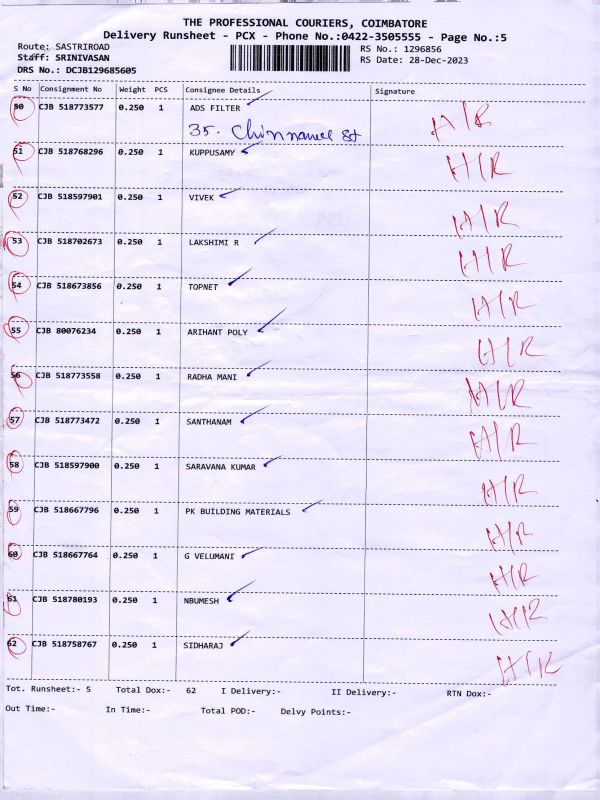 THE PROFESSIONAL COURIERS, COIMBATORE
Delivery Runsheet - PCX - Phone No.:0422-3505555 - Page No.:5
Route: SASTRIROAD
RS No.: 1296856
Staff: SRINIVASAN
RS Date: 28-Dec-2023
DRS No.: DCJB129685605
S No Consignment No Weight PCS Consignee Details Signature
50 CJB 518773577 0.250 1 ADS FILTER A/R
35. St
51 CJB 518768296 0.250 1 KUPPUSAMY H/R
52 CJB 518597901 0.250 1 VIVEK H/R
53 CJB 518702673 0.250 1 LAKSHIMI R H/R
54 CJB 518673856 0.250 1 TOPNET H/R
55 CJB 80076234 0.250 1 ARIHANT POLY H/R
56 CJB 518773558 0.250 1 RADHA MANI H/R
57 CJB 518773472 0.250 1 SANTHANAM H/R
58 CJB 518597900 0.250 1 SARAVANA KUMAR H/R
59 CJB 518667796 0.250 1 PK BUILDING MATERIALS H/R
60 CJB 518667764 0.250 1 G VELUMANI H/R
61 CJB 518780193 0.250 1 NBUMESH H/R
62 CJB 518758767 0.250 1 SIDHARAJ H/R
Tot. Runsheet:- 5 Total Dox:- 62 I Delivery:- II Delivery:- RTN Dox:-
Out Time:- In Time:- Total POD:- Delvy Points:-